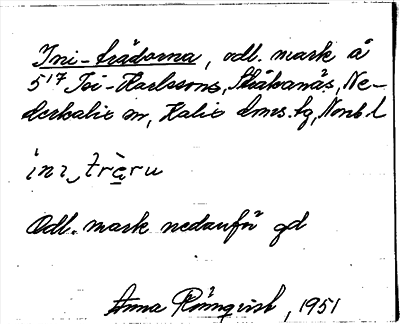 Ini-trädorna, odl. mark å
5¹⁷ Toi-Karlssons, Stråkanäs, Ne-
derkalix sn, Kalix dms. tg, Nonb l
Odl. mark nedanför gd
Anna Rönnqvist, 1951